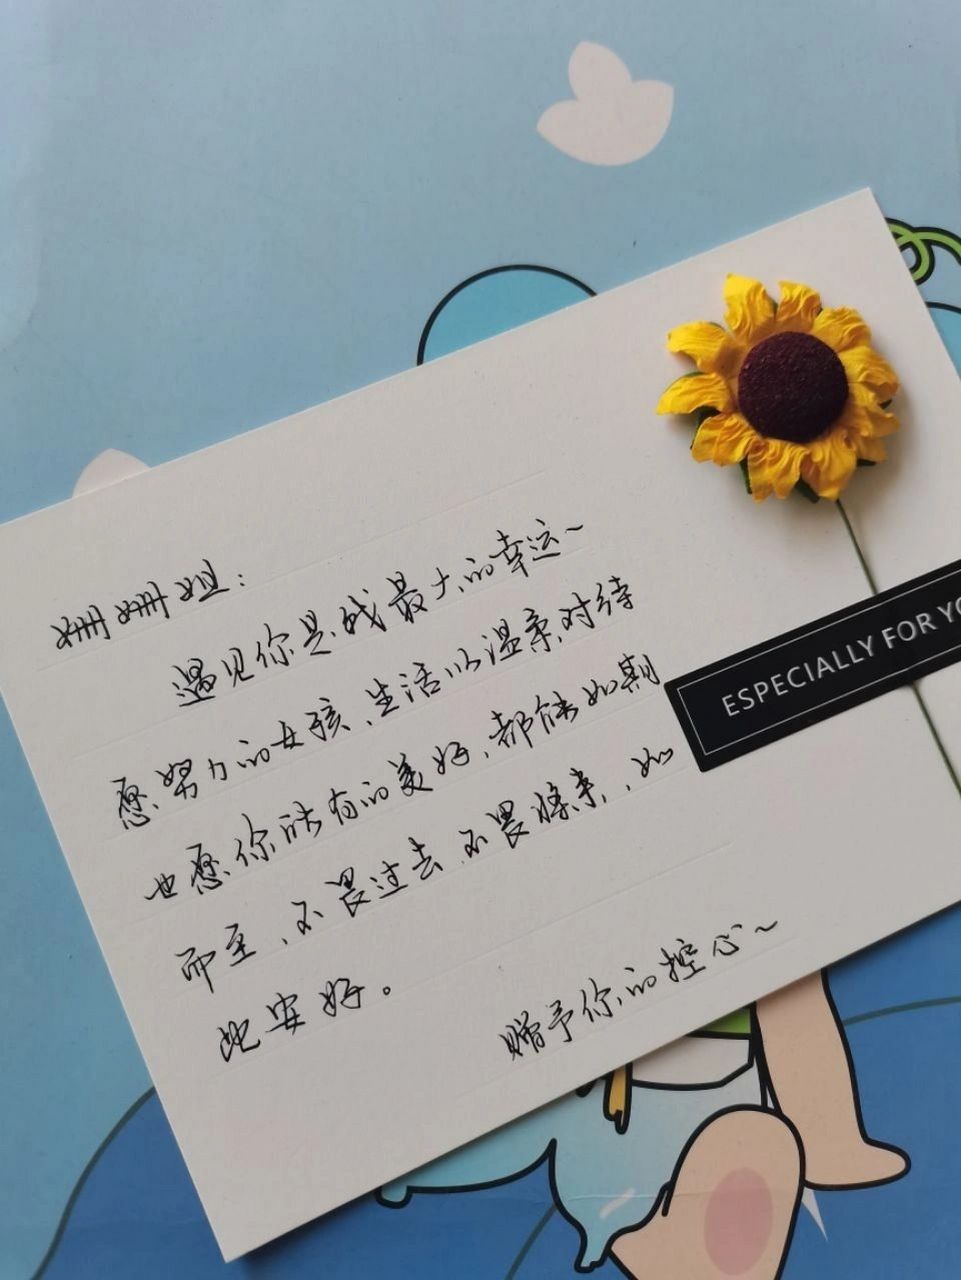 姗姗姐：
遇见你是我最大的幸运~
愿努力的女孩、生活以温柔对待
也愿你所有的美好、都能如期
而至、不畏过去、不畏将来，如
此安好。
赠予你的挖心~
ESPECIALLY FOR YO